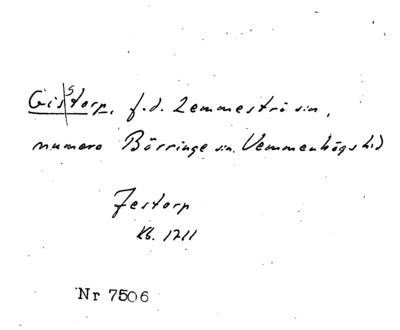 Gisstorp, f.d. Lemmeströ sn,
numera Börringe sn. Vemmenhögs hd
Jestorp
Kb. 1711
Nr 7506